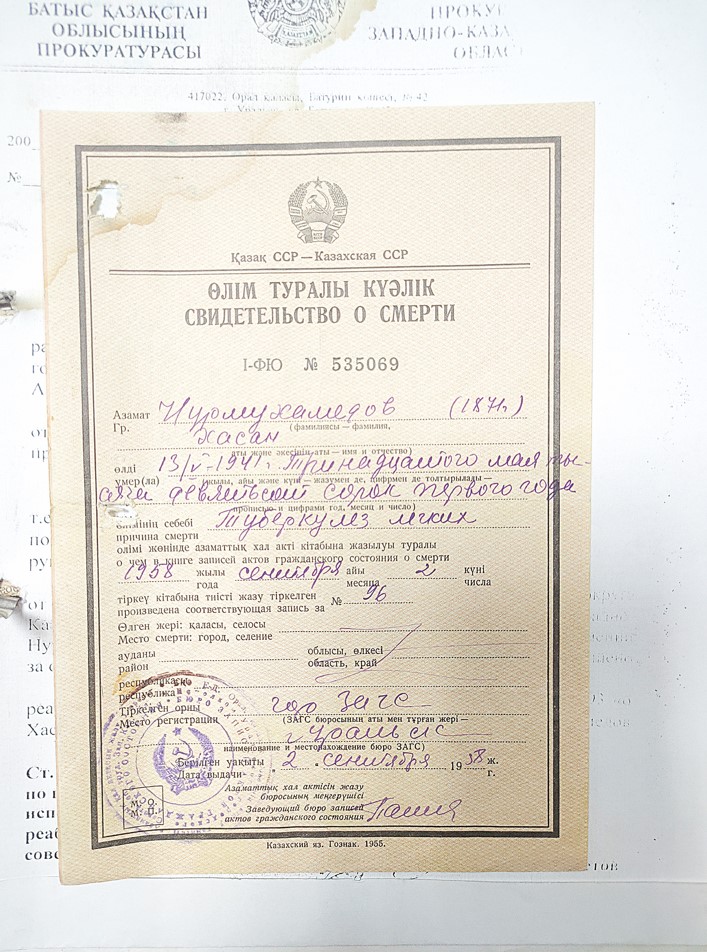 БАТЫС ҚАЗАҚСТАН
ОБЛЫСЫНЫҢ
ПРОКУРАТУРАСЫ
ПРОКУР
ЗАПАДНО-КАЗА
ОБЛАС
417022, Орал қаласы,
200
№
Қазақ ССР — Казахская ССР
ӨЛІМ ТУРАЛЫ КУӘЛІК
СВИДЕТЕЛЬСТВО О СМЕРТИ
I-ФЮ № 535069
Азамат Нурмухамедов (1871г)
Гр. (фамилиясы — фамилия,
Хасан
аты және әкесінің аты — имя и отчество)
өлді 13/V-1941г. Тринадцатого мая ты-
умер(ла) (жылы, айы және күні — жазумен де, цифрмен де толтырылады —
сяча девятьсот сорок первого года
прописью и цифрами год, месяц и число)
өлімінің себебі Туберкулез легких
причина смерти
өлімі жөнінде азаматтық хал акті кітабына жазылуы туралы
о чем в книге записей актов гражданского состояния о смерти
1958 жылы сентября айы 2 күні
года месяца числа
тіркеу кітабына тиісті жазу тіркелген № 96
произведена соответствующая запись за
Өлген жері: қаласы, селосы
Место смерти: город, селение
ауданы облысы, өлкесі
район область, край
республикасы
республика
Тіркелген орны гор ЗАГС
Место регистрации (ЗАГС бюросының аты мен тұрған жері —
г Уральск
наименование и месторахождение бюро ЗАГС)
Берілген уақыты 2 сентября 1958 ж.
Дата выдачи г.
Азаматтық хал актісін жазу
бюросының меңгерушісі
Заведующий бюро записей
актов гражданского состояния
М. О.
М. П.
Казахский яз. Гознак. 1955.
Ст.
по
исп
реаб
сове